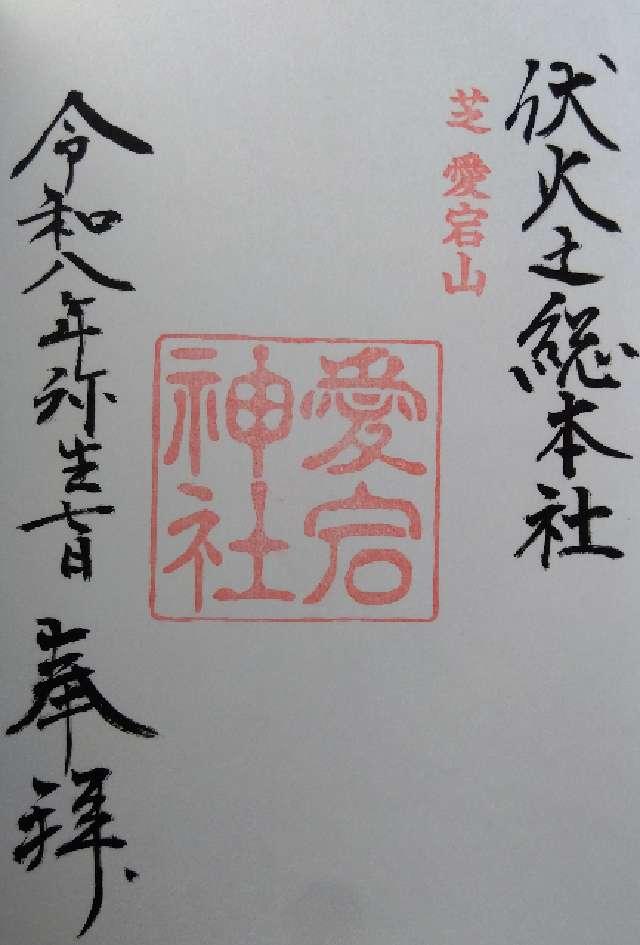 伏火之総本社
芝 愛宕山
愛宕
神社
令和八年弥生七日
奉拝